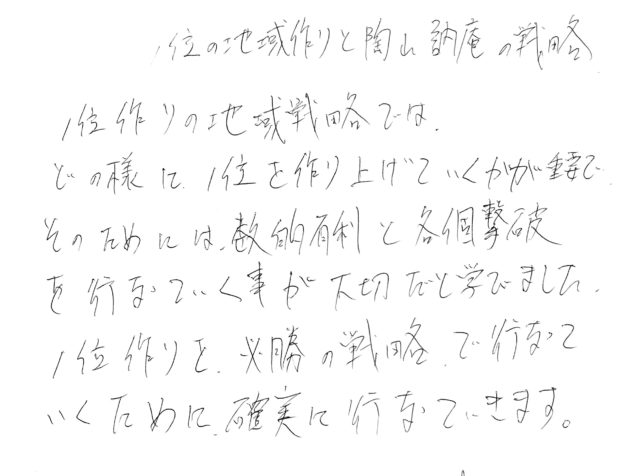 1位の地域作りと陶山訥庵の戦略
1位作りの地域戦略では、
どの様に、1位を作り上げていくかが重要で
そのためには、数的有利と各個撃破
を行なっていく事が大切だと学びました。
1位作りを、必勝の戦略、で行なって
いくために、確実に行なっていきます。